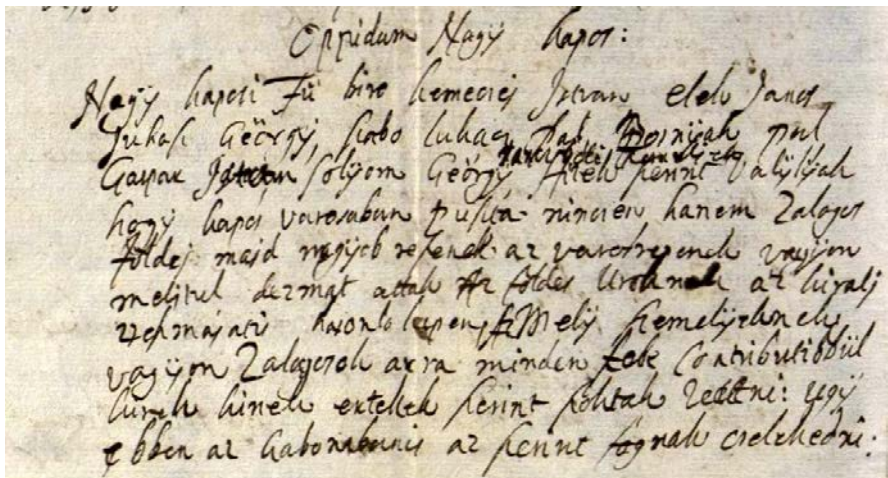 Oppidum Nagy kapos:
Nagy kaposi Fü biro kemecsej Istvan elek Janos
Jukasi Geörgÿ, szabo lukacz, Pal, Bornÿak pal
Gaspar Istvan solÿom Geörgÿ hitek szerint vallÿak
hogÿ kapos varosaban puszta nincsen hanem Zalogos
földej majd nagÿob resenek az varosresenek vagÿon
melÿtül dezmat attak Az földes Uroknak az kiralÿ
hasonlo keppen, Melÿ szemelÿeknek
vagÿon Zalogosok arra minden fele Contributiobül
kinek ertekek szerint szoktak vettni: ugÿ
ebben az Gabonabanis az szerint fognak cselekedni: